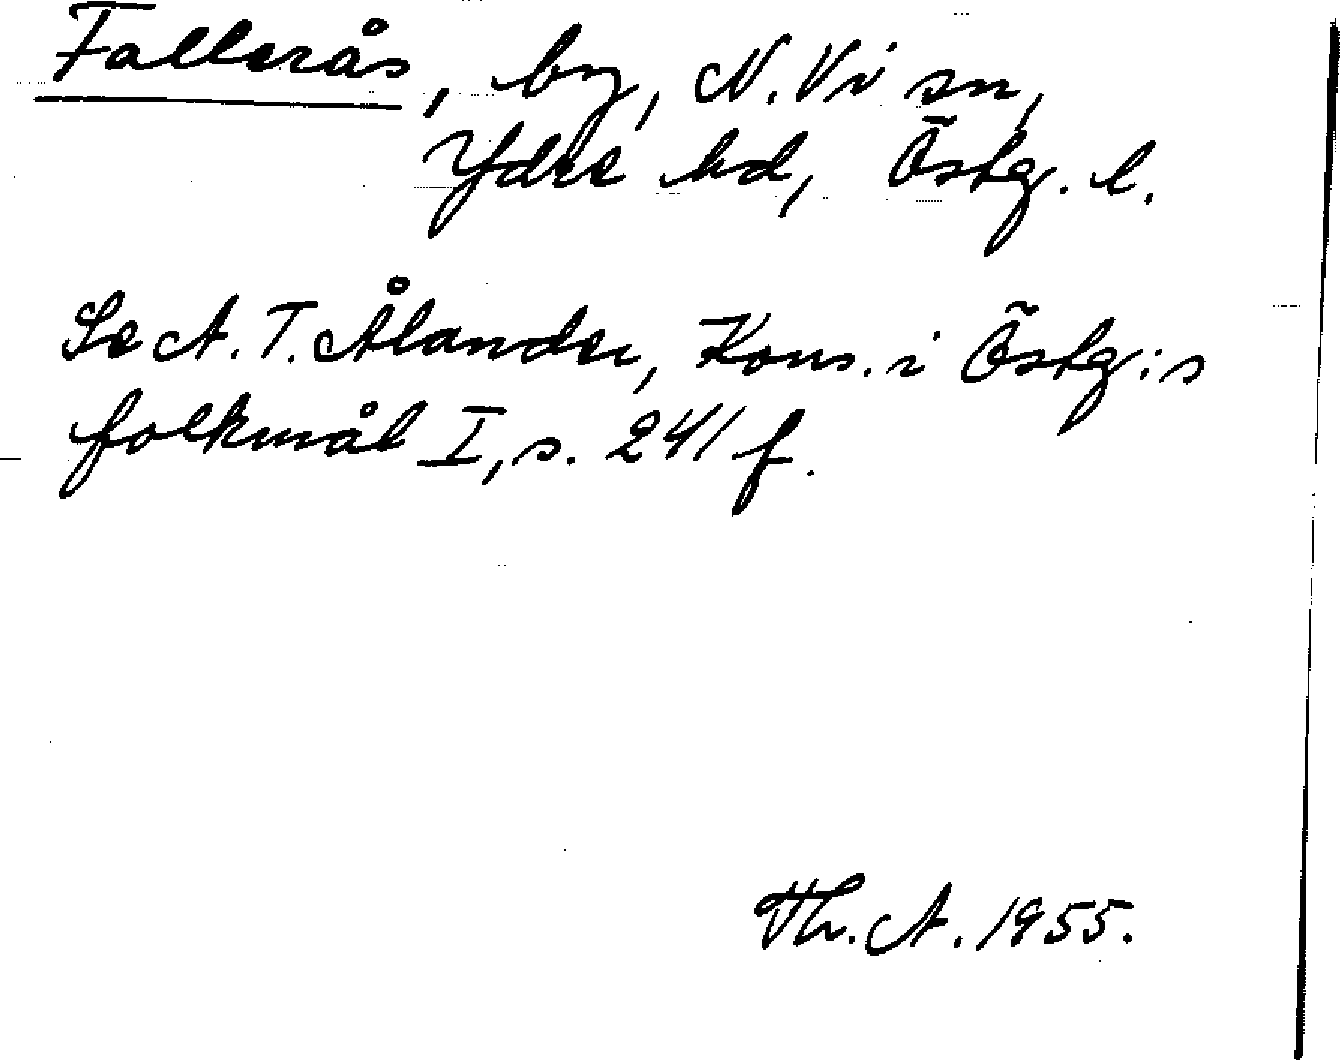 Fallerås, by, N. Vi sn,
Ydre hd, Östg. l.
Se A. T. Ålander, Kons. i Östg:s
folkmål I, s. 241 f.
Th. A. 1955.